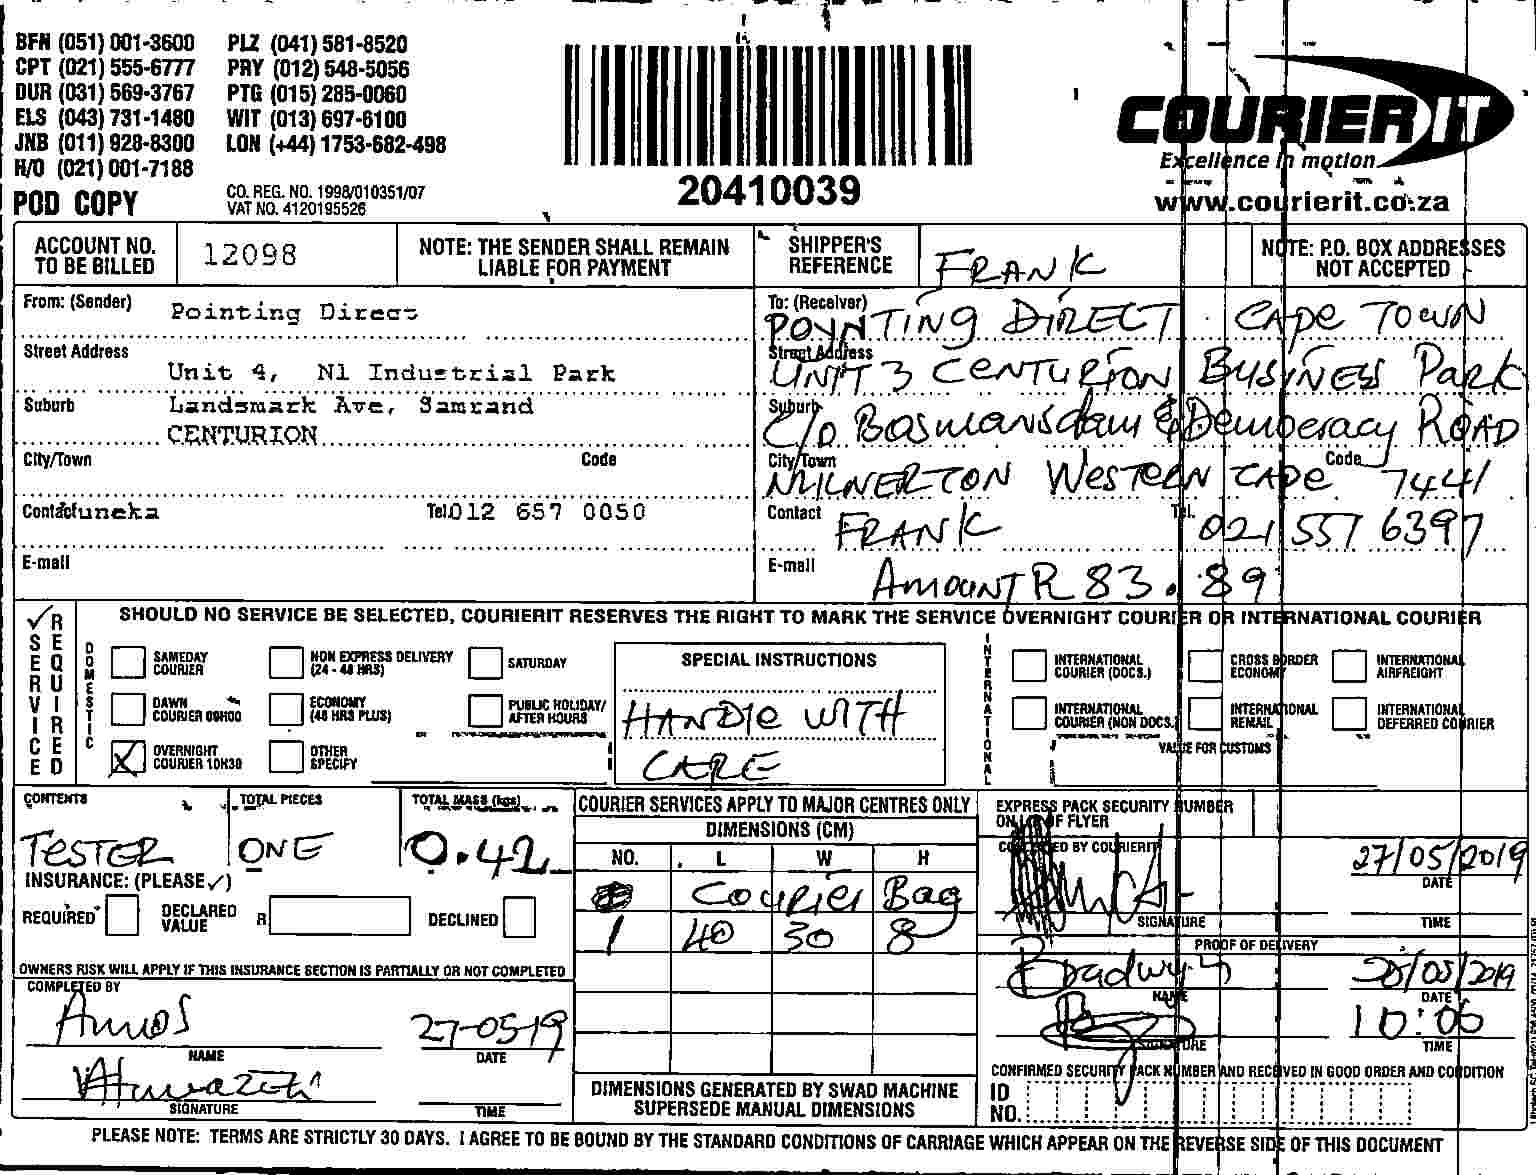 BFN (051) 001-3600 PLZ (041) 581-8520
CPT (021) 555-6777 PRY (012) 548-5056
DUR (031) 569-3767 PTG (015) 285-0060
ELS (043) 731-1480 WIT (013) 697-6100
JNB (011) 928-8300 LON (+44) 1753-682-498
H/O (021) 001-7188
POD COPY
CO. REG. NO. 1998/010351/07
VAT NO. 4120195526
20410039
COURIER IT
Excellence in motion
www.courierit.co.za
ACCOUNT NO. TO BE BILLED 12098
NOTE: THE SENDER SHALL REMAIN LIABLE FOR PAYMENT
SHIPPER'S REFERENCE FRANK
NOTE: P.O. BOX ADDRESSES NOT ACCEPTED
From: (Sender) Pointing Direct
Street Address Unit 4, N1 Industrial Park
Suburb Landsmark Ave, Samrand
CENTURION
City/Town Code
Contact Tel. 012 657 0050
E-mail
To: (Receiver) POYNTING DIRECT. CAPE TOWN
Street Address UNIT 3 CENTURION BUSINESS PARK
Suburb C/o Bosmansdam & Democracy ROAD
City/Town MILNERTON WESTERN CAPE Code 7441
Contact FRANK Tel. 021 557 6397
E-mail AMOUNT R 83.89
SERVICE REQUIRED
SHOULD NO SERVICE BE SELECTED, COURIERIT RESERVES THE RIGHT TO MARK THE SERVICE OVERNIGHT COURIER OR INTERNATIONAL COURIER
DOMESTIC
SAMEDAY COURIER
NON EXPRESS DELIVERY (24 - 48 HRS)
SATURDAY
DAWN COURIER 09H00
ECONOMY (48 HRS PLUS)
PUBLIC HOLIDAY/ AFTER HOURS
X OVERNIGHT COURIER 10H30
OTHER SPECIFY
SPECIAL INSTRUCTIONS
HANDLE WITH
CARE
INTERNATIONAL
INTERNATIONAL COURIER (DOCS.)
CROSS BORDER ECONOMY
INTERNATIONAL AIRFREIGHT
INTERNATIONAL COURIER (NON DOCS.)
INTERNATIONAL REMAIL
INTERNATIONAL DEFERRED COURIER
VALUE FOR CUSTOMS
CONTENTS TESTER
TOTAL PIECES ONE
TOTAL MASS (kgs) 0.42
INSURANCE: (PLEASE ✓)
REQUIRED DECLARED VALUE R DECLINED
OWNERS RISK WILL APPLY IF THIS INSURANCE SECTION IS PARTIALLY OR NOT COMPLETED
COMPLETED BY
Amos 27-05-19
NAME DATE
SIGNATURE TIME
COURIER SERVICES APPLY TO MAJOR CENTRES ONLY
DIMENSIONS (CM)
NO. L W H
Courier Bag
1 40 30 8
DIMENSIONS GENERATED BY SWAD MACHINE
SUPERSEDE MANUAL DIMENSIONS
EXPRESS PACK SECURITY NUMBER
ON LIP OF FLYER
COLLECTED BY COURIERIT 27/05/2019
DATE
SIGNATURE TIME
PROOF OF DELIVERY
NAME DATE
10:06
SIGNATURE TIME
CONFIRMED SECURITY PACK NUMBER AND RECEIVED IN GOOD ORDER AND CONDITION
ID NO.
PLEASE NOTE: TERMS ARE STRICTLY 30 DAYS. I AGREE TO BE BOUND BY THE STANDARD CONDITIONS OF CARRIAGE WHICH APPEAR ON THE REVERSE SIDE OF THIS DOCUMENT